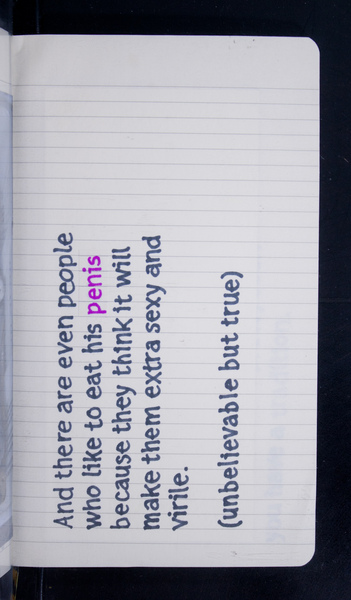 And there are even people
who like to eat his penis
because they think it will
make them extra sexy and
virile.
(unbelievable but true)